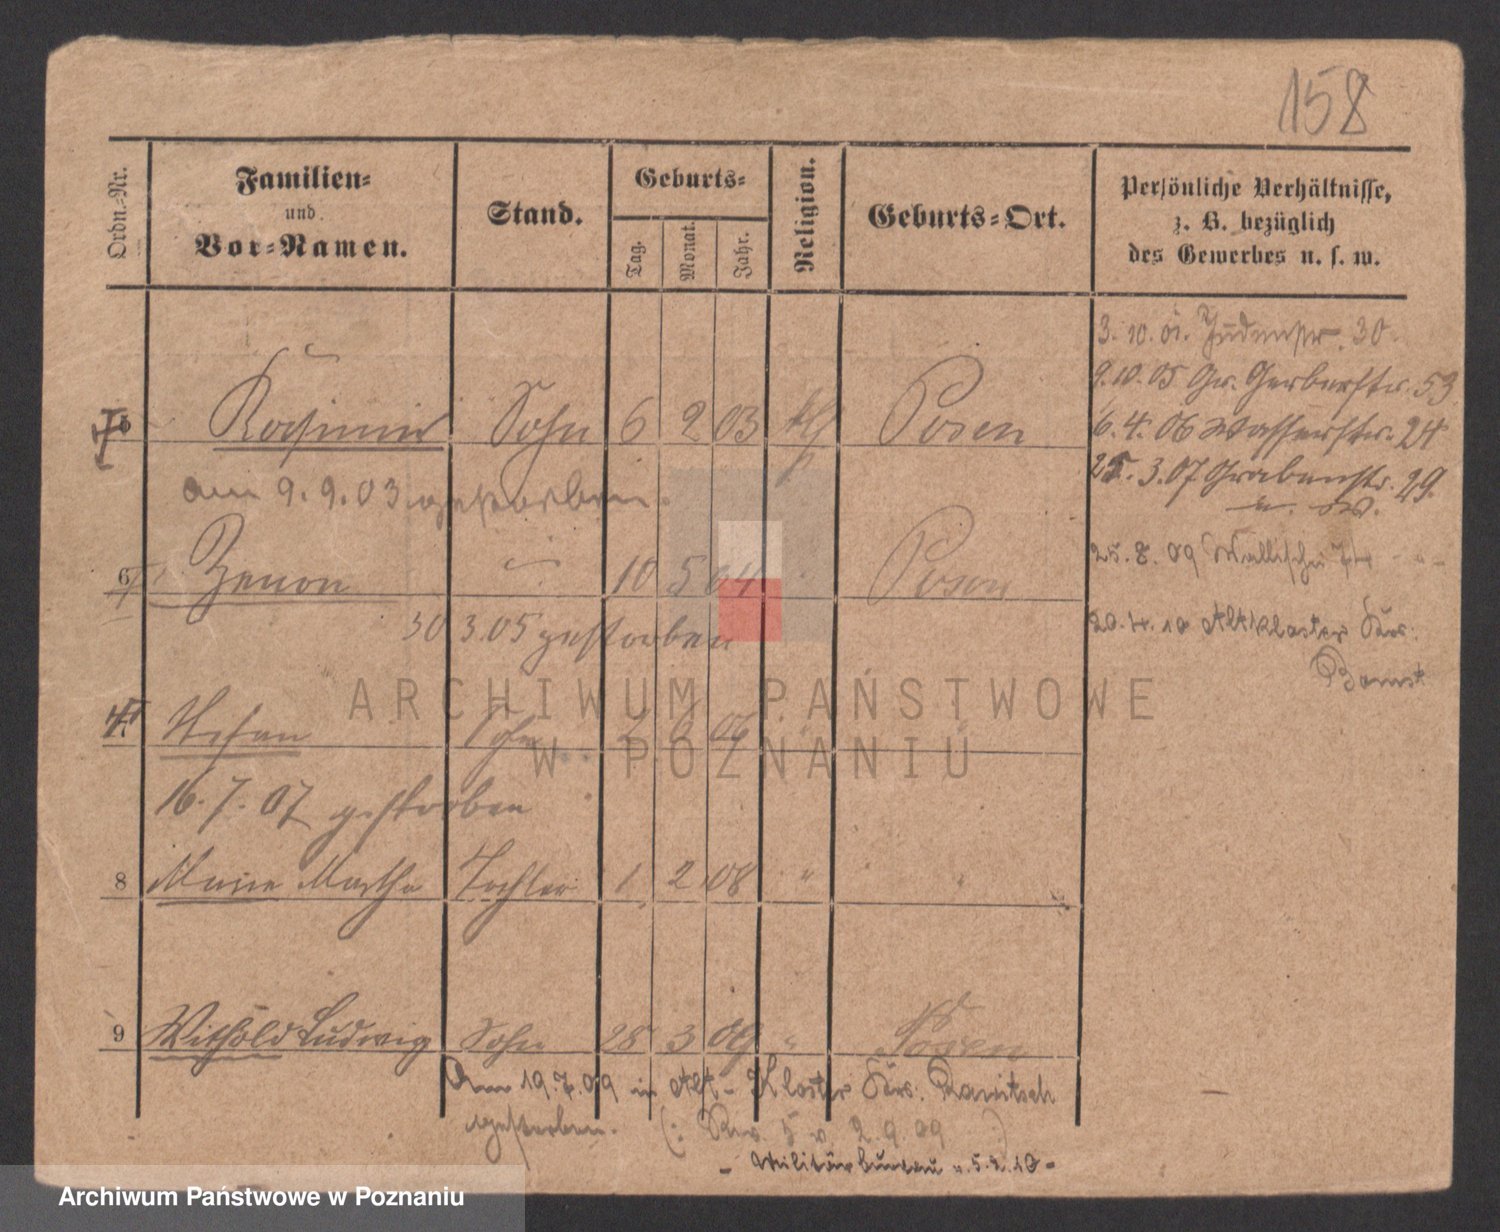 158
Ordn.-Nr.
Familien-
und
Vor-Namen.
Stand.
Geburts-
Tag.
Monat.
Jahr.
Religion.
Geburts-Ort.
Persönliche Verhältnisse,
z. B. bezüglich
des Gewerbes u. s. w.
3. 10. 01. Judenstr. 30.
9. 10. 05 Gr. Gerberstr. 53
6. 4. 06 Wasserstr. 24
25. 3. 07 Grabenstr. 29.
25. 8. 09 Wallischei
20. 4. 10 Altkloster Krs.
Bomst
Kasimir Sohn 6 2 03 kth Posen
am 9. 9. 03 gestorben.
6 Zenon " 10 5 04 Posen
30 3. 05 gestorben
Stefan Sohn 2 06
16. 7. 07 gestorben
8 Marie Martha Tochter 1 2 08 " "
9 Withold Ludwig Sohn 28 3 09 " Posen
Am 19. 7. 09 in Alt-Kloster Krs. Rawitsch
gestorben. (: Rev. 5 v. 2. 9. 09 )
- Militärbureau v. 5. 2. 10 -
ARCHIWUM PAŃSTWOWE
W POZNANIU
Archiwum Państwowe w Poznaniu